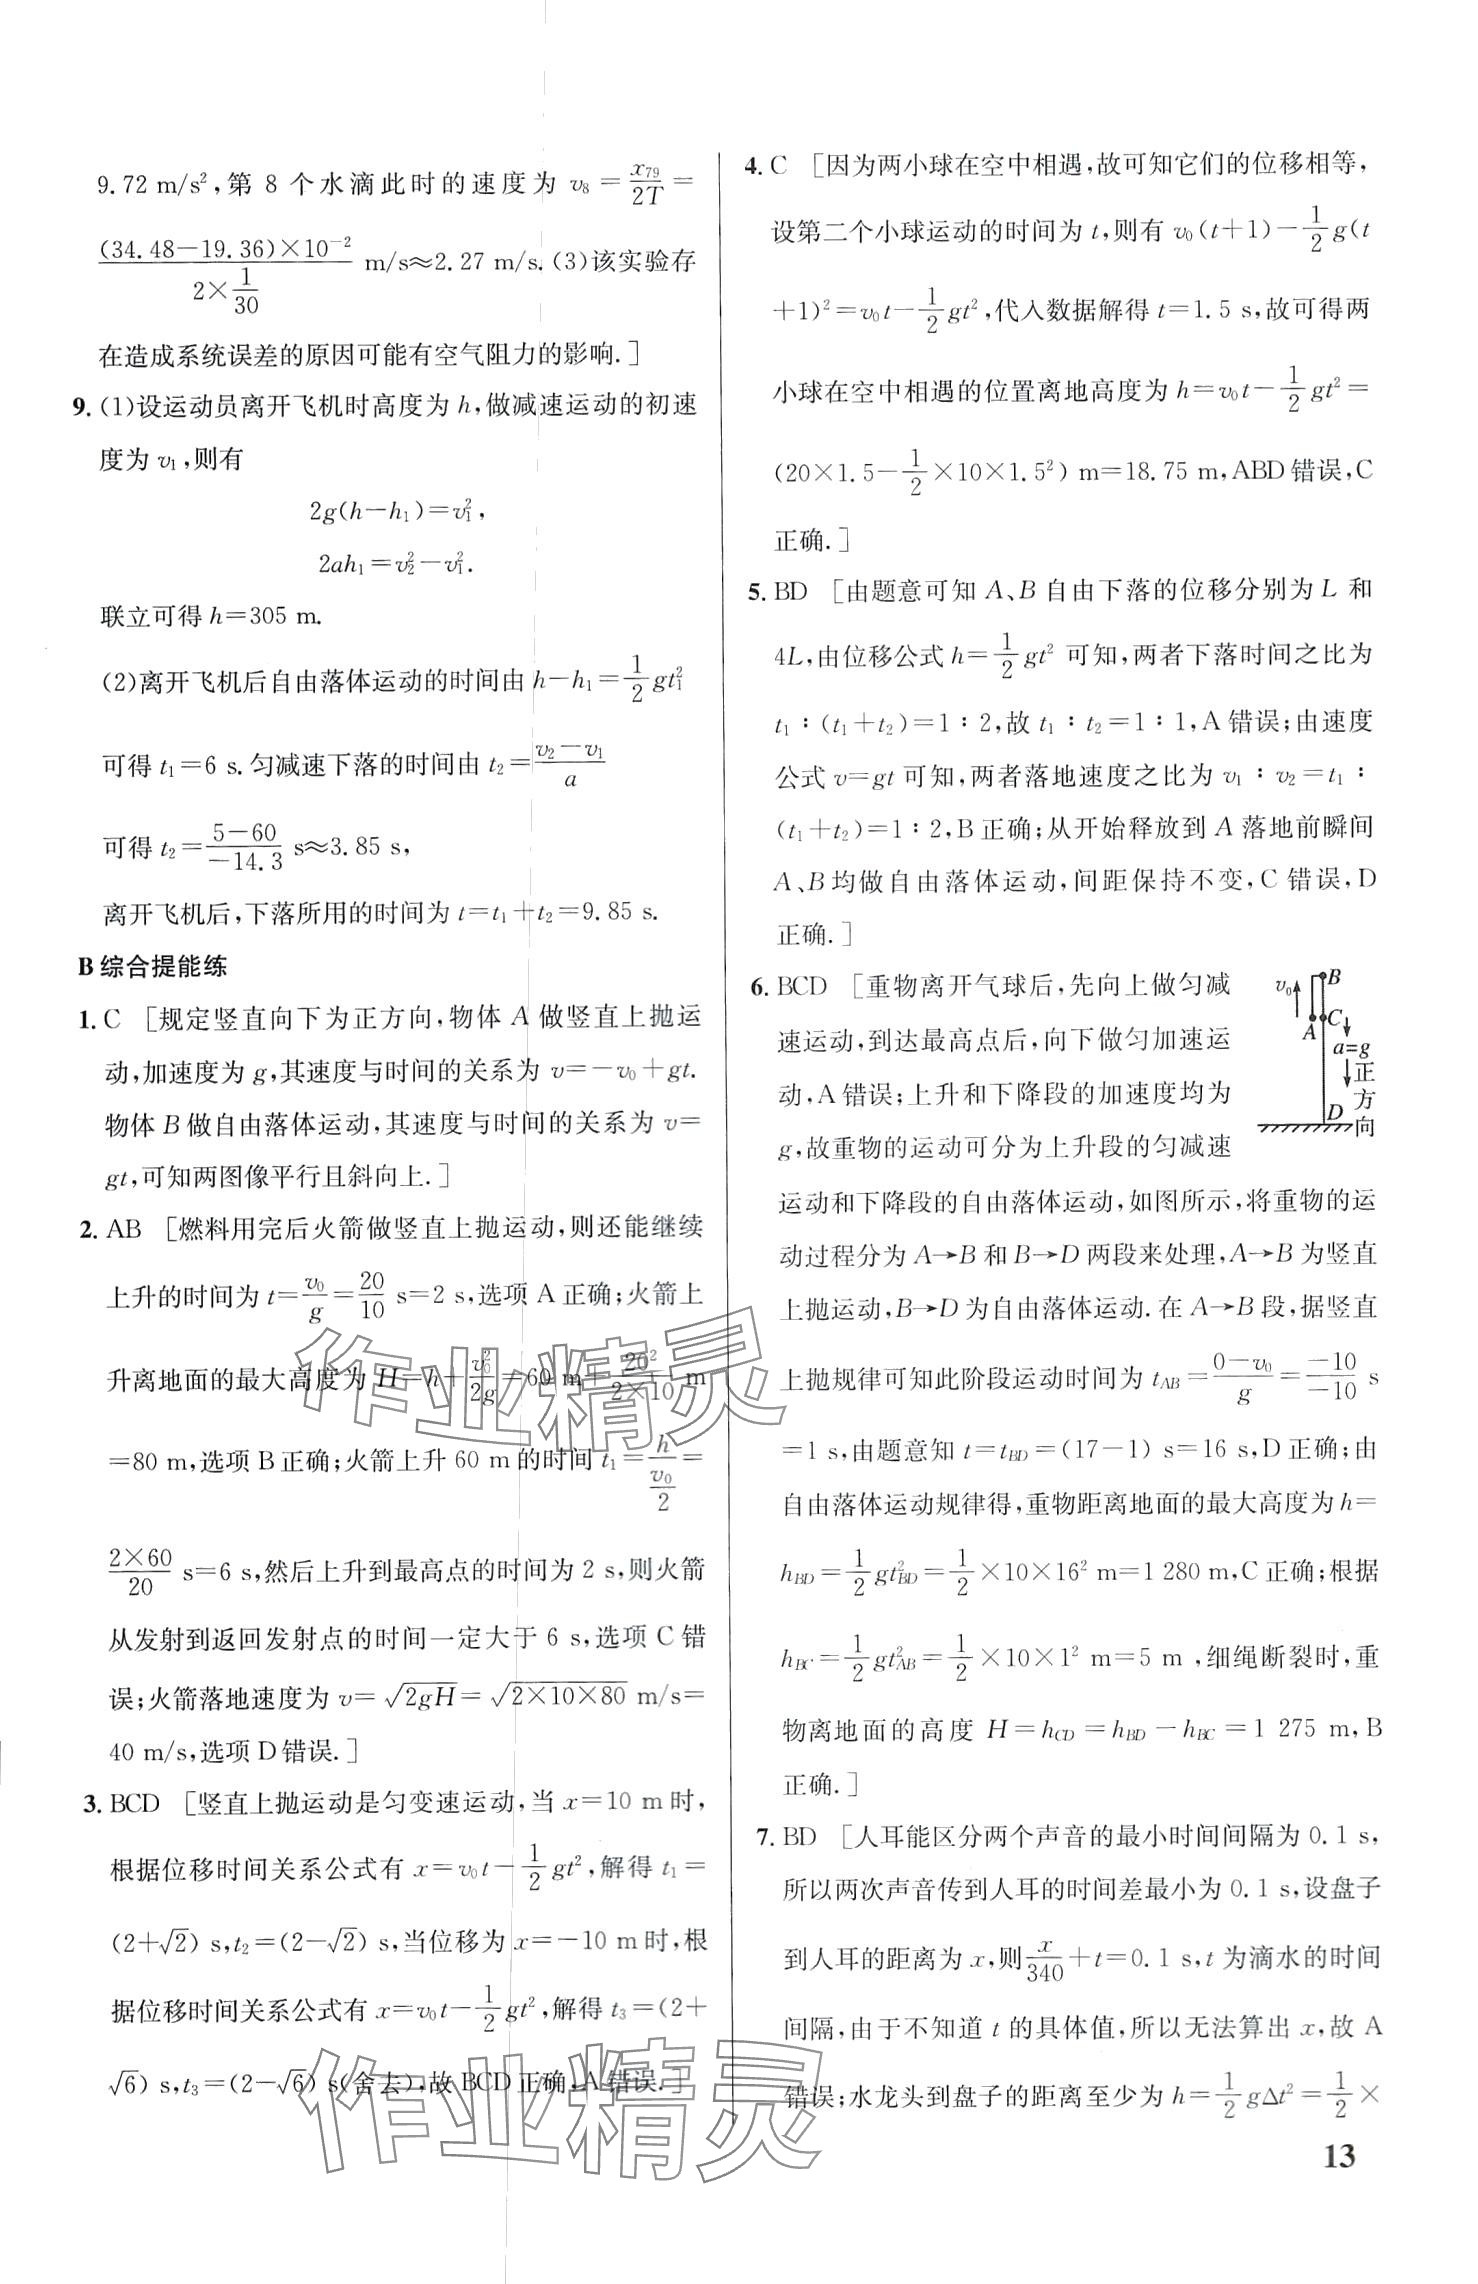 9.72 m/s²,第 8 个水滴此时的速度为 v₈ = x₇₉/2T =
(34.48−19.36)×10⁻²/(2×1/30) m/s≈2.27 m/s.(3)该实验存
在造成系统误差的原因可能有空气阻力的影响.]
9. (1)设运动员离开飞机时高度为 h,做减速运动的初速
度为 v₁,则有
2g(h−h₁)=v₁²,
2ah₁=v₂²−v₁².
联立可得 h=305 m.
(2)离开飞机后自由落体运动的时间由 h−h₁=1/2 gt₁²
可得 t₁=6 s.匀减速下落的时间由 t₂=(v₂−v₁)/a
可得 t₂=(5−60)/(−14.3) s≈3.85 s,
离开飞机后,下落所用的时间为 t=t₁+t₂=9.85 s.
B 综合提能练
1. C [规定竖直向下为正方向,物体 A 做竖直上抛运
动,加速度为 g,其速度与时间的关系为 v=−v₀+gt.
物体 B 做自由落体运动,其速度与时间的关系为 v=
gt,可知两图像平行且斜向上.]
2. AB [燃料用完后火箭做竖直上抛运动,则还能继续
上升的时间为 t=v₀/g=20/10 s=2 s,选项 A 正确;火箭上
升离地面的最大高度为 H=h+v₀²/2g=60 m+20²/(2×10) m
=80 m,选项 B 正确;火箭上升 60 m 的时间 t₁=h/(v₀/2)=
2×60/20 s=6 s,然后上升到最高点的时间为 2 s,则火箭
从发射到返回发射点的时间一定大于 6 s,选项 C 错
误;火箭落地速度为 v=√(2gH)=√(2×10×80) m/s=
40 m/s,选项 D 错误.]
3. BCD [竖直上抛运动是匀变速运动,当 x=10 m 时,
根据位移时间关系公式有 x=v₀t−1/2 gt²,解得 t₁=
(2+√2) s,t₂=(2−√2) s,当位移为 x=−10 m 时,根
据位移时间关系公式有 x=v₀t−1/2 gt²,解得 t₃=(2+
√6) s,t₃=(2−√6) s(舍去),故 BCD 正确,A 错误.]
4. C [因为两小球在空中相遇,故可知它们的位移相等,
设第二个小球运动的时间为 t,则有 v₀(t+1)−1/2 g(t
+1)²=v₀t−1/2 gt²,代入数据解得 t=1.5 s,故可得两
小球在空中相遇的位置离地高度为 h=v₀t−1/2 gt²=
(20×1.5−1/2×10×1.5²) m=18.75 m,ABD 错误,C
正确.]
5. BD [由题意可知 A、B 自由下落的位移分别为 L 和
4L,由位移公式 h=1/2 gt² 可知,两者下落时间之比为
t₁∶(t₁+t₂)=1∶2,故 t₁∶t₂=1∶1,A 错误;由速度
公式 v=gt 可知,两者落地速度之比为 v₁∶v₂=t₁∶
(t₁+t₂)=1∶2,B 正确;从开始释放到 A 落地前瞬间
A、B 均做自由落体运动,间距保持不变,C 错误,D
正确.]
6. BCD [重物离开气球后,先向上做匀减
速运动,到达最高点后,向下做匀加速运
动,A 错误;上升和下降段的加速度均为
g,故重物的运动可分为上升段的匀减速
v₀ B
A C
a=g
正方向
D
运动和下降段的自由落体运动,如图所示,将重物的运
动过程分为 A→B 和 B→D 两段来处理,A→B 为竖直
上抛运动,B→D 为自由落体运动.在 A→B 段,据竖直
上抛规律可知此阶段运动时间为 t_AB=(0−v₀)/g=−10/−10 s
=1 s,由题意知 t=t_BD=(17−1) s=16 s,D 正确;由
自由落体运动规律得,重物距离地面的最大高度为 h=
h_BD=1/2 gt²_BD=1/2×10×16² m=1 280 m,C 正确;根据
h_BC=1/2 gt²_AB=1/2×10×1² m=5 m ,细绳断裂时,重
物离地面的高度 H=h_CD=h_BD−h_BC=1 275 m,B
正确.]
7. BD [人耳能区分两个声音的最小时间间隔为 0.1 s,
所以两次声音传到人耳的时间差最小为 0.1 s,设盘子
到人耳的距离为 x,则 x/340+t=0.1 s,t 为滴水的时间
间隔,由于不知道 t 的具体值,所以无法算出 x,故 A
错误;水龙头到盘子的距离至少为 h=1/2 gΔt²=1/2×
13
作业精灵
作业精灵